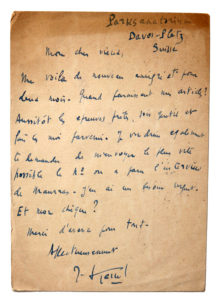 Parksanatorium
Davos-Platz
Suisse
Mon cher vieux,
Me voilà de nouveau ici pour
deux mois. Quand paraissent mes articles?
Aussitôt les épreuves prêtes, sois gentil et
fais les moi parvenir. Je voudrais également
te demander de m'envoyer le plus vite
possible le No où a paru l'interview
de Mauras. J'en ai un besoin urgent.
Et mon chèque?
Merci d'avance pour tout.
Affectueusement